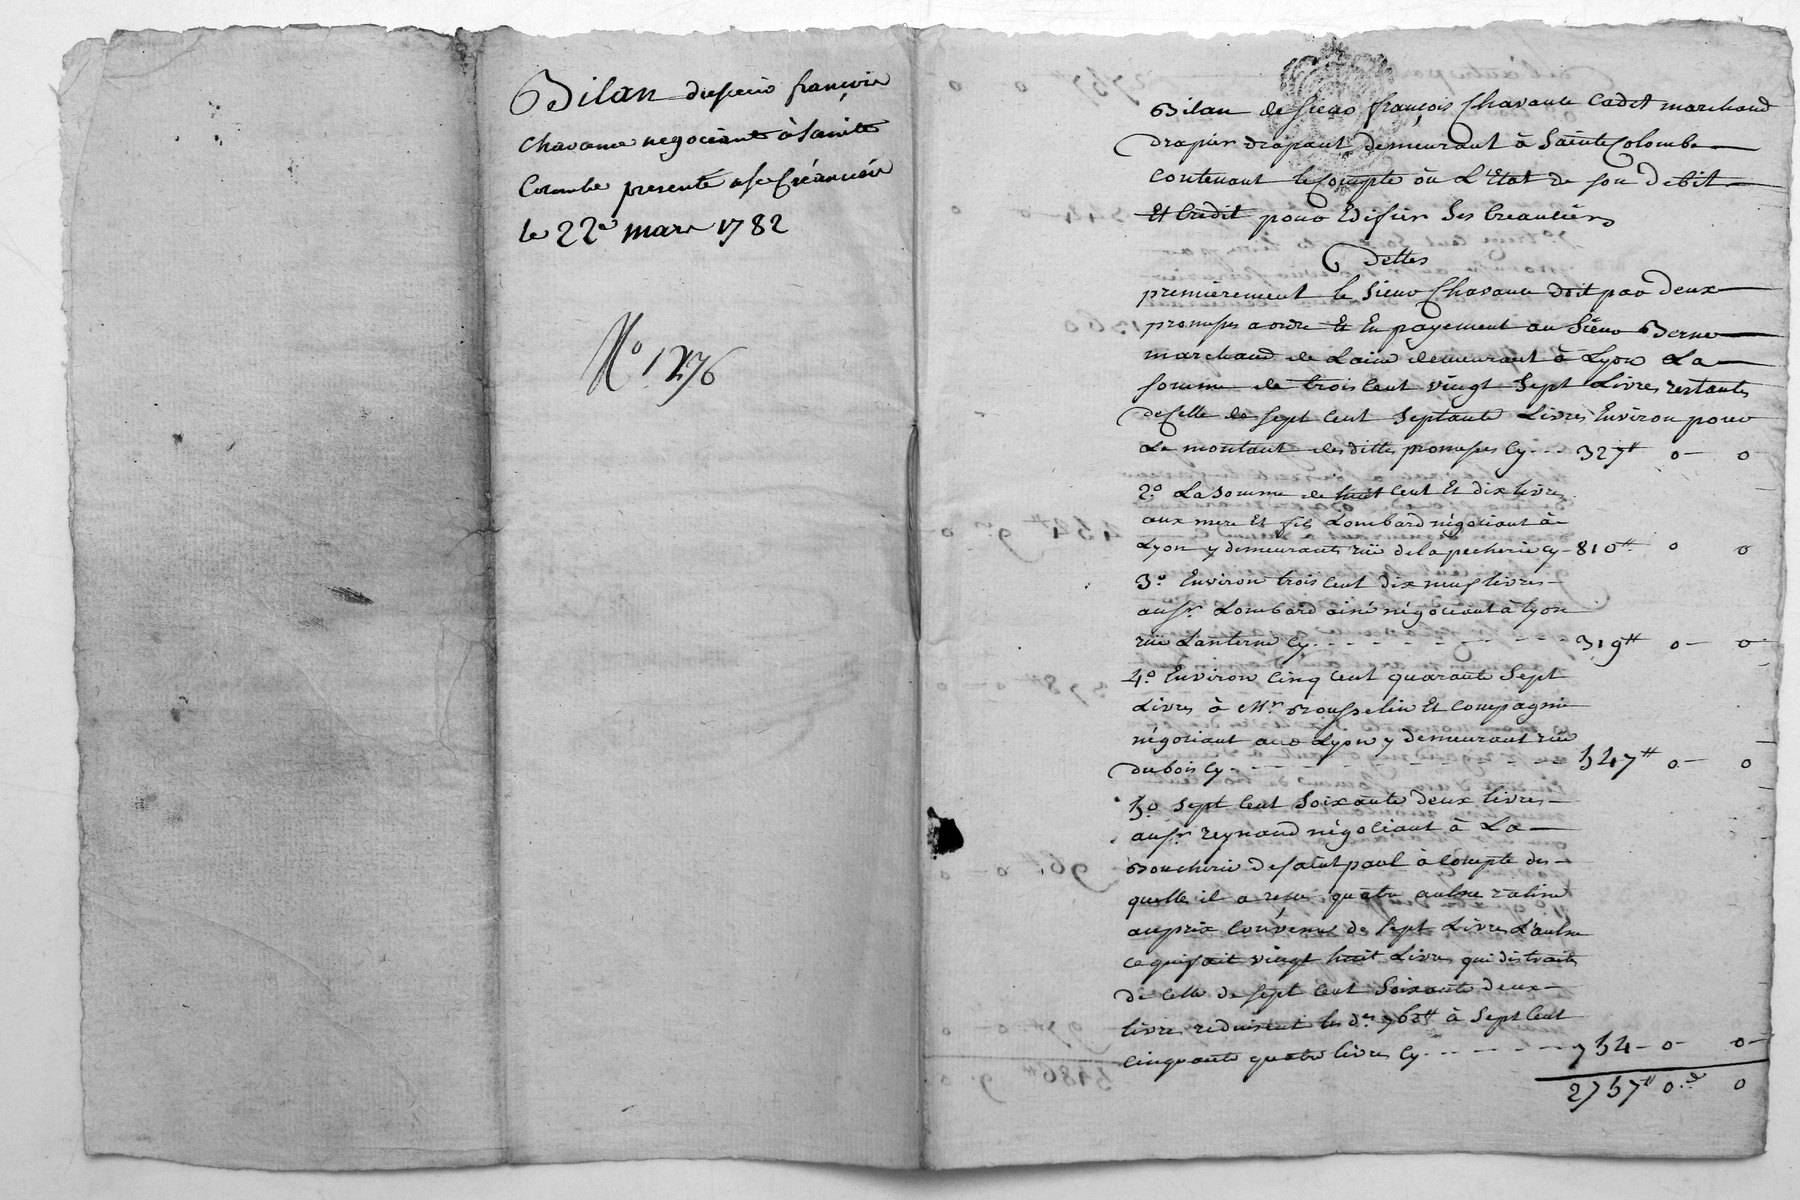 Bilan du sieur françois
Chavanne negociant à Sainte
Colombe presenté a ses Créanciers
le 22e mars 1782
No. 1276
Bilan de sieur françois Chavanne Cadet marchand
drapier drapant demeurant à Sainte Colombe
contenant le Compte où L'Etat de son debit
Et Credit pour Edifier Ses Creanciers
Dettes
premièrement le Sieur Chavanne doit par deux
promesses a ordre Et En payement au Sieur Berne
marchand de Laine demeurant à Lyon La
somme de trois Cent vingt Sept Livres restante
de Celle de sept Cent Septante Livres Environ pour
Le montant desdittes promesses Cy --- 327# 0 - 0
2.o La Somme de huit Cent Et dix livres
aux mere Et fils Lombard négociant à
Lyon y demeurants rüe de la pecherie Cy - 810# 0 0
3.o Environ trois Cent dix neuf livres
au Sr. Lombard ainé négociant à Lyon
rüe Lanterne Cy - - - - - - 319# 0 - 0
4.o Environ Cinq Cent quarante Sept
Livres à Mr. Et Compagnie
négociant a Lyon y demeurant rüe
du bois Cy - - - - - - 547# 0 - 0
5.o Sept Cent Soixante deux livres
au Sr. reynaud négociant à La
Boucherie de saint paul à Compte des
quelles il a resu quatre aulne ratine
au prix Convenu de Sept Livres L'aulne
ce qui fait vingt huit Livres qui distraites
de Celle de Sept Cent Soixante deux
livres reduisent les d.es 762# à Sept Cent
Cinquante quatre livres Cy - - - - - 754 - 0 - 0 -
2757# 0.s 0